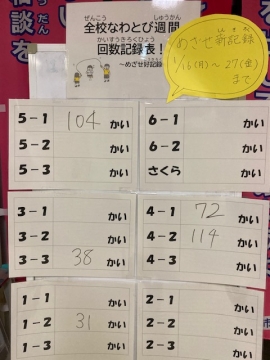 ぜんこう しゅうかん
全校なわとび週間
かいすうきろくひょう
回数記録表!
～めざせ好記録
めざせ新記録
1/16(月)～27(金)
まで
5-1 104 かい
5-2 かい
5-3 かい
6-1 かい
6-2 かい
さくら かい
3-1 かい
3-2 かい
3-3 38 かい
4-1 72 かい
4-2 114 かい
4-3 かい
1-1 かい
1-2 31 かい
1-3 かい
2-1 かい
2-2 かい
2-3 かい